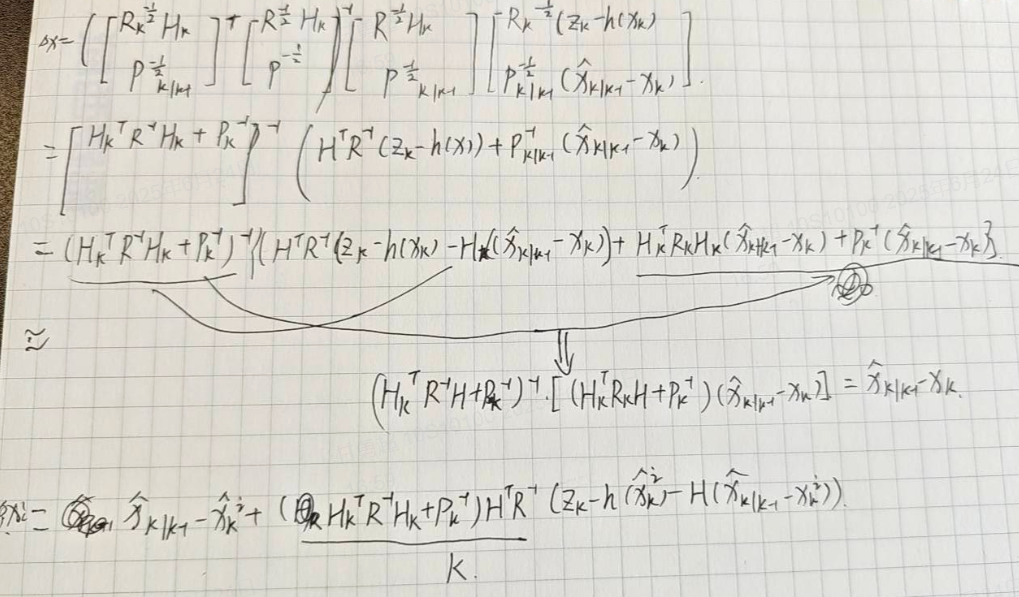 Δx = ( [ R_k^{-1/2} H_k ; P^{-1/2}_{k|k-1} ]^T [ R^{-1/2} H_k ; P^{-1/2} ] )^{-1} [ R^{-1/2} H_k ; P^{-1/2}_{k|k-1} ] [ R_k^{-1/2} (z_k - h(x_k) ; P^{-1/2}_{k|k-1} (x̂_{k|k-1} - x_k) ].
= [ H_k^T R^{-1} H_k + P_k^{-1} ]^{-1} ( H^T R^{-1} (z_k - h(x)) + P^{-1}_{k|k-1} (x̂_{k|k-1} - x_k) ).
= (H_k^T R^{-1} H_k + P_k^{-1})^{-1} { (H^T R^{-1} (z_k - h(x_k) - H_k (x̂_{k|k-1} - x_k)) + H_k^T R_k H_k (x̂_{k|k-1} - x_k) + P_k^{-1} (x̂_{k|k-1} - x_k) }.
≈
⇓
(H_k^T R^{-1} H + P_k^{-1})^{-1} · [ (H_k^T R_k H + P_k^{-1}) (x̂_{k|k-1} - x_k) ] = x̂_{k|k-1} - x_k.
x^i = x̂_{k|k-1} - x̂_k^i + (H_k^T R^{-1} H_k + P_k^{-1}) H^T R^{-1} (z_k - h(x̂_k^i) - H(x̂_{k|k-1} - x_k^i)).
K.